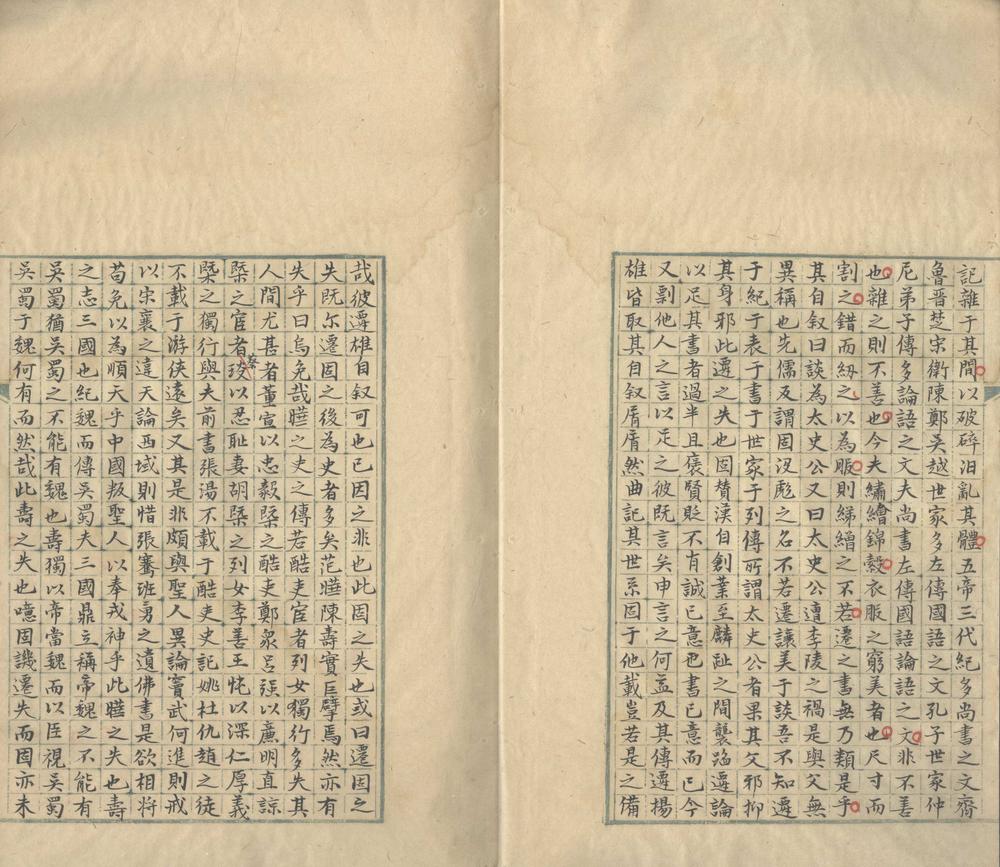 記雜于其間以破碎汨亂其體五帝三代紀多尚書之文齊
魯晉楚宋衛陳鄭吳越世家多左傳國語之文孔子世家仲
尼弟子傳多論語之文夫尚書左傳國語論語之文非不善
也雜之則不善也今夫繡繪錦縠衣服之窮美者也尺寸而
割之錯而紉之以為服則綈繒之不若遷之書無乃類是乎
其自叙曰談為太史公又曰太史公遭李陵之禍是與父無
異稱也先儒反謂固沒彪之名不若遷讓美于談吾不知遷
于紀于表于書于世家于列傳所謂太史公者果其父邪抑
其身邪此遷之失也固贊漢自創業至麟趾之間襲蹈遷論
以足其書者過半且褒賢貶不肖誠已意也書已意而已今
又剽他人之言以足之彼既言矣申言之何益及其傳遷揚
雄皆取其自叙屑屑然曲記其世系固于他載豈若是之備
哉彼遷雄自叙可也已因之非也此固之失也或曰遷固之
失既尔遷固之後為史者多矣范曄陳壽實巨擘焉然亦有
失乎曰烏免哉曄之史之傳若酷吏宦者列女獨行多失其
人間尤甚者董宣以忠毅槩之酷吏鄭衆呂强以廉明直諒
槩之宦者蔡琰以忍耻妻胡槩之列女李善王忳以深仁厚義
槩之獨行與夫前書張湯不載于酷吏史記姚杜仇趙之徒
不載于游俠遠矣又其是非頗與聖人異論竇武何進則戒
以宋襄之違天論西域則惜張騫班勇之遺佛書是欲相將
苟免以為順天乎中國叛聖人以奉戎神乎此曄之失也壽
之志三國也紀魏而傳吳蜀夫三國鼎立稱帝魏之不能有
吳蜀猶吳蜀之不能有魏也壽獨以帝當魏而以臣視吳蜀
吳蜀于魏何有而然哉此壽之失也噫固譏遷失而固亦未